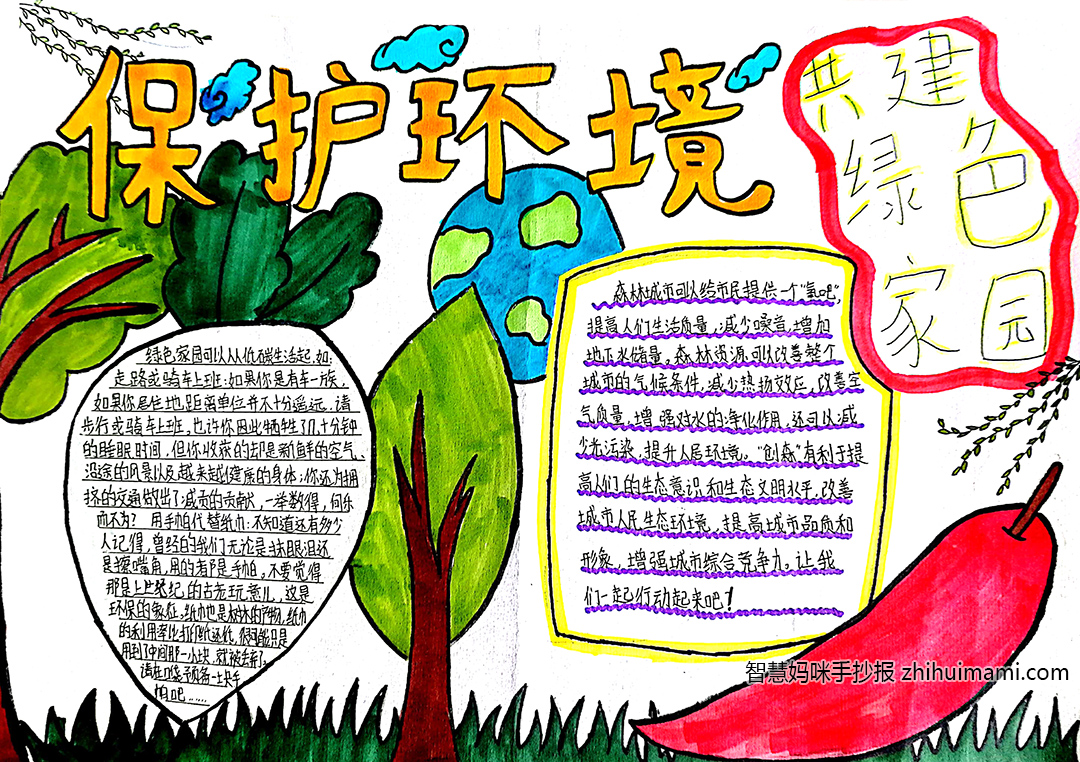 保护环境
共建
绿色
家园
绿色家园可以从低碳生活起,如:
走路或骑车上班:如果你是有车一族,
如果你居住地距离单位并不十分遥远,请
步行或骑车上班,也许你因此牺牲了几十分钟
的睡眠时间,但你收获的却是新鲜的空气、
沿途的风景以及越来越健康的身体;你还为拥
挤的交通做出了减负的贡献,一举数得,何乐
而不为? 用手帕代替纸巾:不知道还有多少
人记得,曾经的我们无论是抹眼泪还
是擦嘴角,用的都是手帕。不要觉得
那是上世纪的古老玩意儿,这是
环保的象征;纸巾也是树林的产物,纸巾
的利用率比打印纸还低,很可能只是
用到了中间那一小块,就被丢弃了。
请在口袋予预备一块手
帕吧……
森林城市可以给市民提供一个“氧吧”,
提高人们生活质量,减少噪音,增加
地下水储量。森林资源可以改善整个
城市的气候条件,减少热扬效应,改善空
气质量,增强对水的净化作用,还可以减
少光污染,提升人居环境。“创森”有利于提
高人们的生态意识和生态文明水平,改善
城市人民生态环境,提高城市品质和
形象,增强城市综合竞争力。让我
们一起行动起来吧!
智慧妈咪手抄报 zhihuimami.com